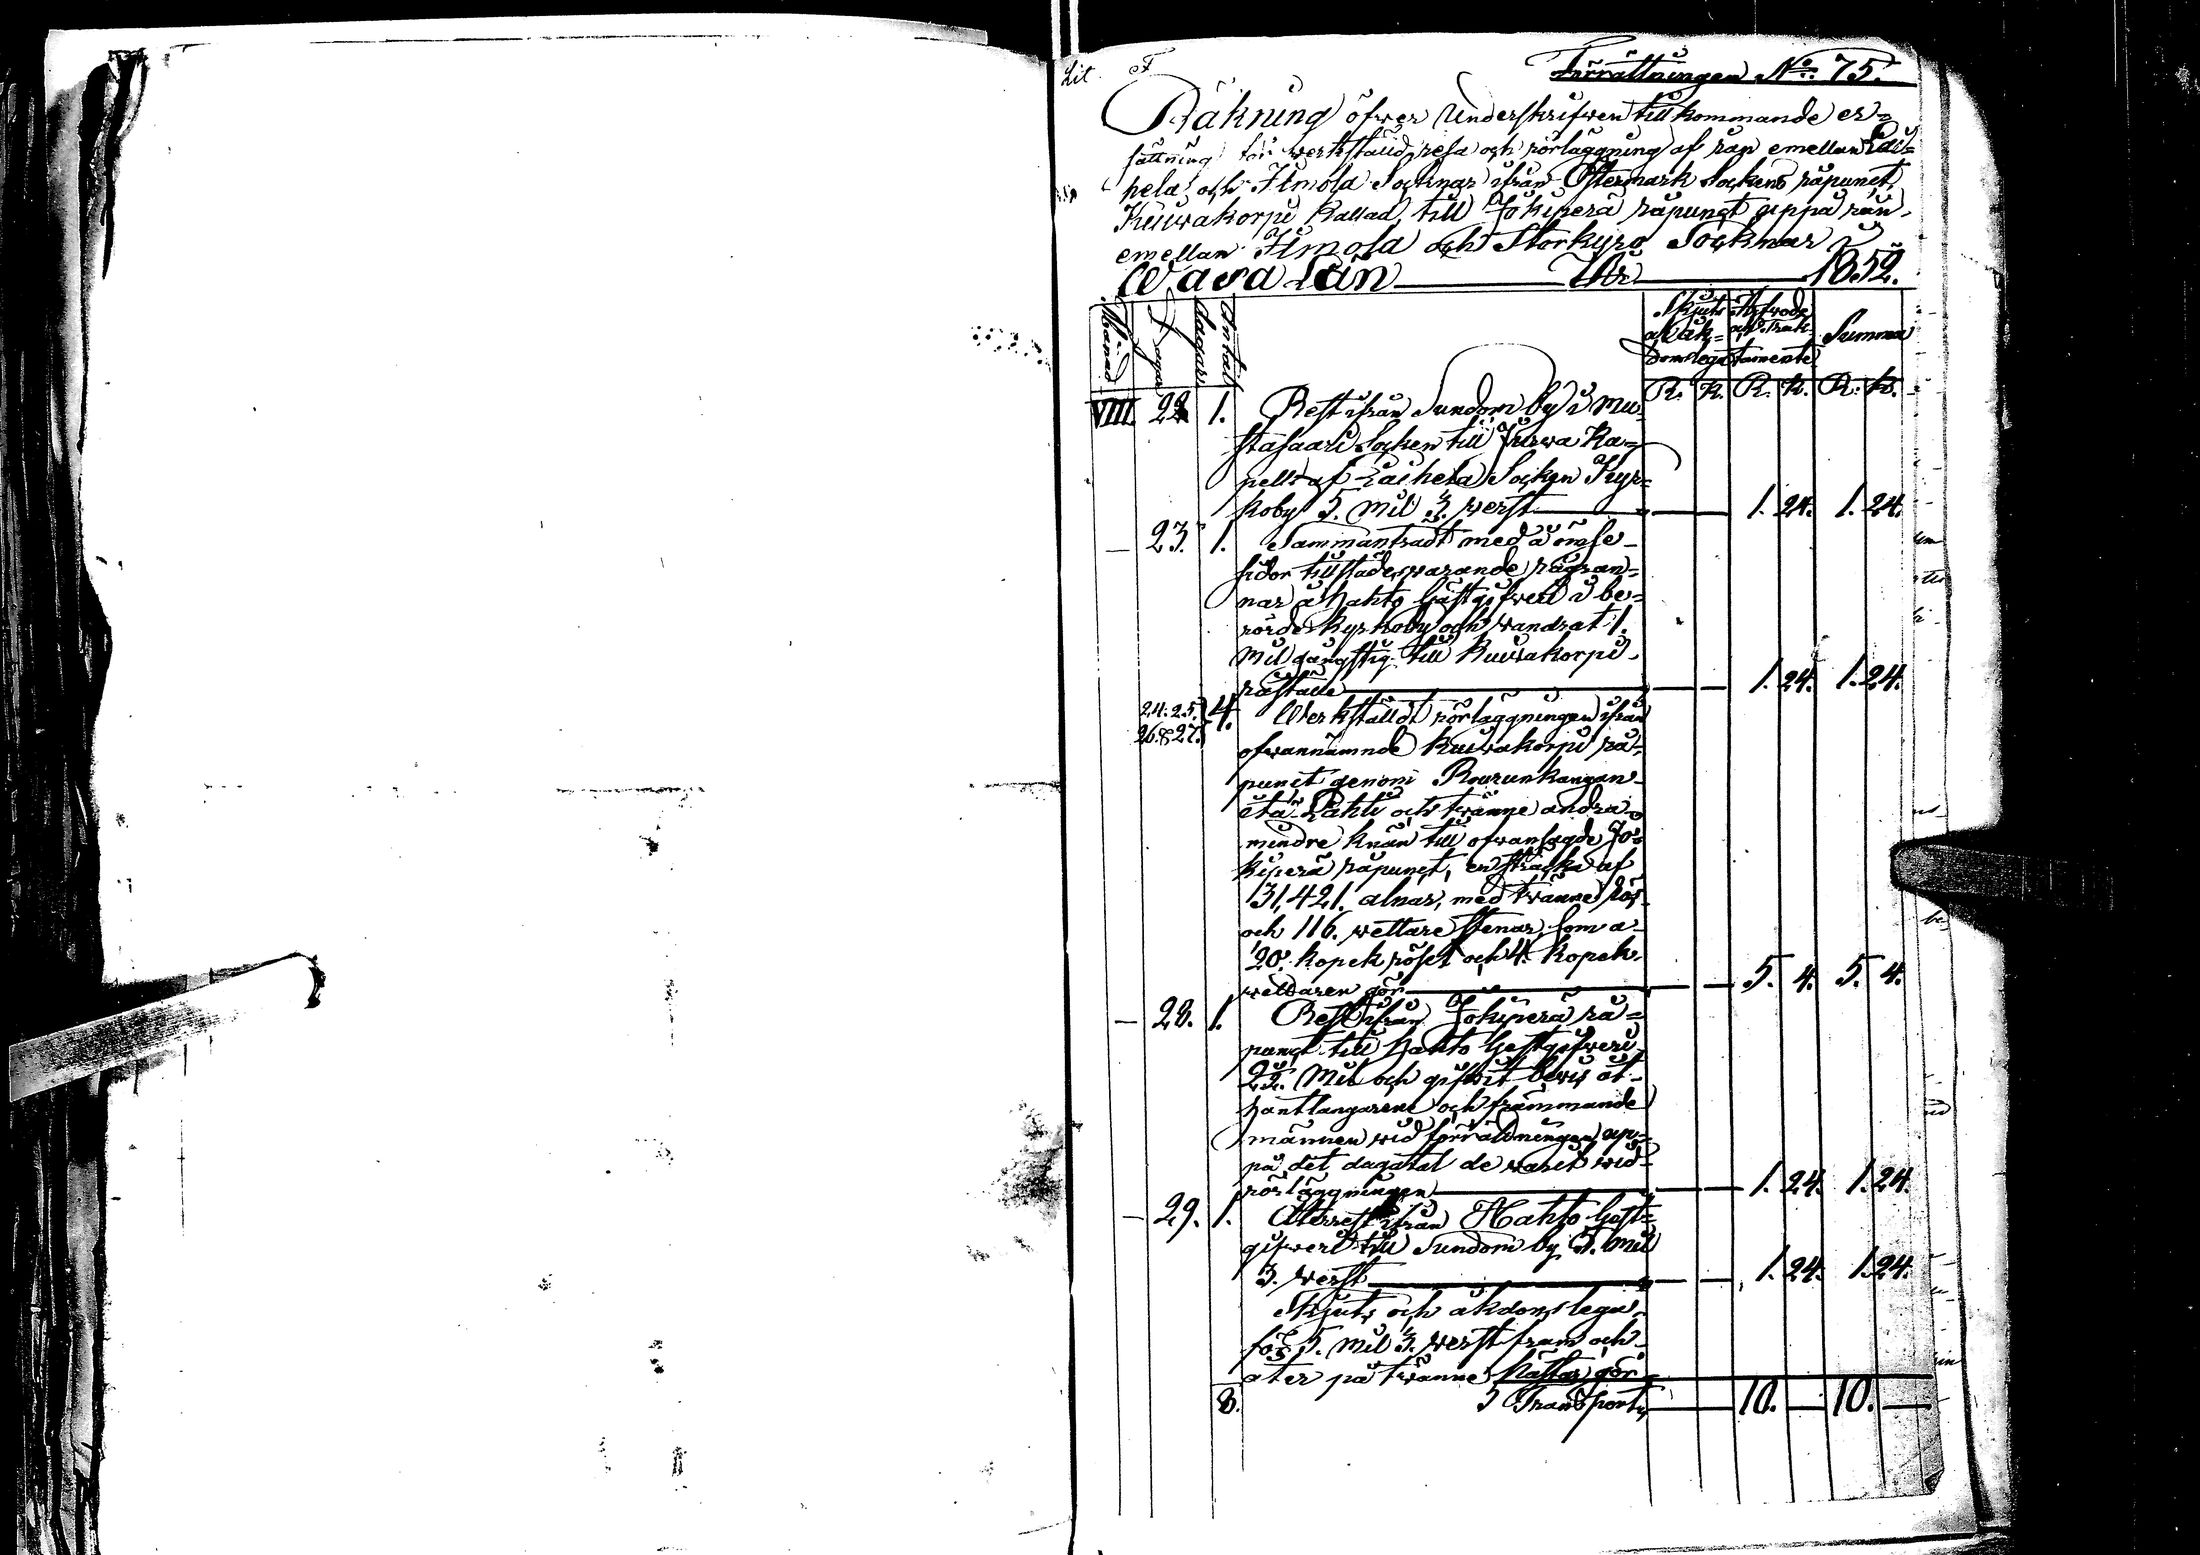 Lit. F.
Förrättningen No: 75.
Räkning öfwer Underskrifwen tillkommande er=
sättning för werkställd resa och rörläggning af rån emellan Lai=
hela och Ilmola Socknar ifrån Östermark Sockens råpunct,
Kuiwakorpi kallad, till Jokiperä råpungt uppå rån
emellan Ilmola och Storkyro Socknar i
Wasa Län År 1852.
Månad
Dagar
Antal dagar
Skjuts Arfvode
o. åk= och Trak=
domslega tamente
Summa
R. K. R. K. R. K.
VIII. 22 1. Rest ifrån Sundom by i Mu=
stasaari Socken till Jurwa Ka=
pell af Laihela Socken Kyr=
koby 5. Mil 3. werst 1. 24. 1. 24.
— 23. 1. Sammanträdt med å ömse
sidor tillstädeswarande rågran=
nar å Hahto Gästgifweri i be=
rörde kyrkoby och wandrat 1.
Mil gångstig till Kuiwakorpi
råställe 1. 24. 1. 24.
24. 25. 26. & 27. 4. Werkställdt rörläggningen ifrån
ofwannämnde Kuiwakorpi rå=
punct genom Rourunkangan
itä Lahti och twänne andra
mindre knän till ofwansagde Jo=
kiperä råpunct, en sträcka af
31,421. alnar, med twänne rör
och 116. wettare stenar som a
20. kopek röset och 4. kopek
wettaren gör 5. 4. 5. 4.
— 28. 1. Rest ifrån Jokiperä rå=
pungt till Hahto Gestgifweri
2½. Mil och gifwit bevis åt
Hantlangarene och främmande
männen wid förrättningen, up=
på det dagatal de warit wid
rörläggningen 1. 24. 1. 24.
— 29. 1. Återrest ifrån Hahto Gest=
gifweri till Sundom by 5. Mil
3. werst 1. 24. 1. 24.
Skjuts och åkdons lega
för 5. Mil 3. werst fram och
åter på twänne hästar gör
8. Transport 10. — 10. —